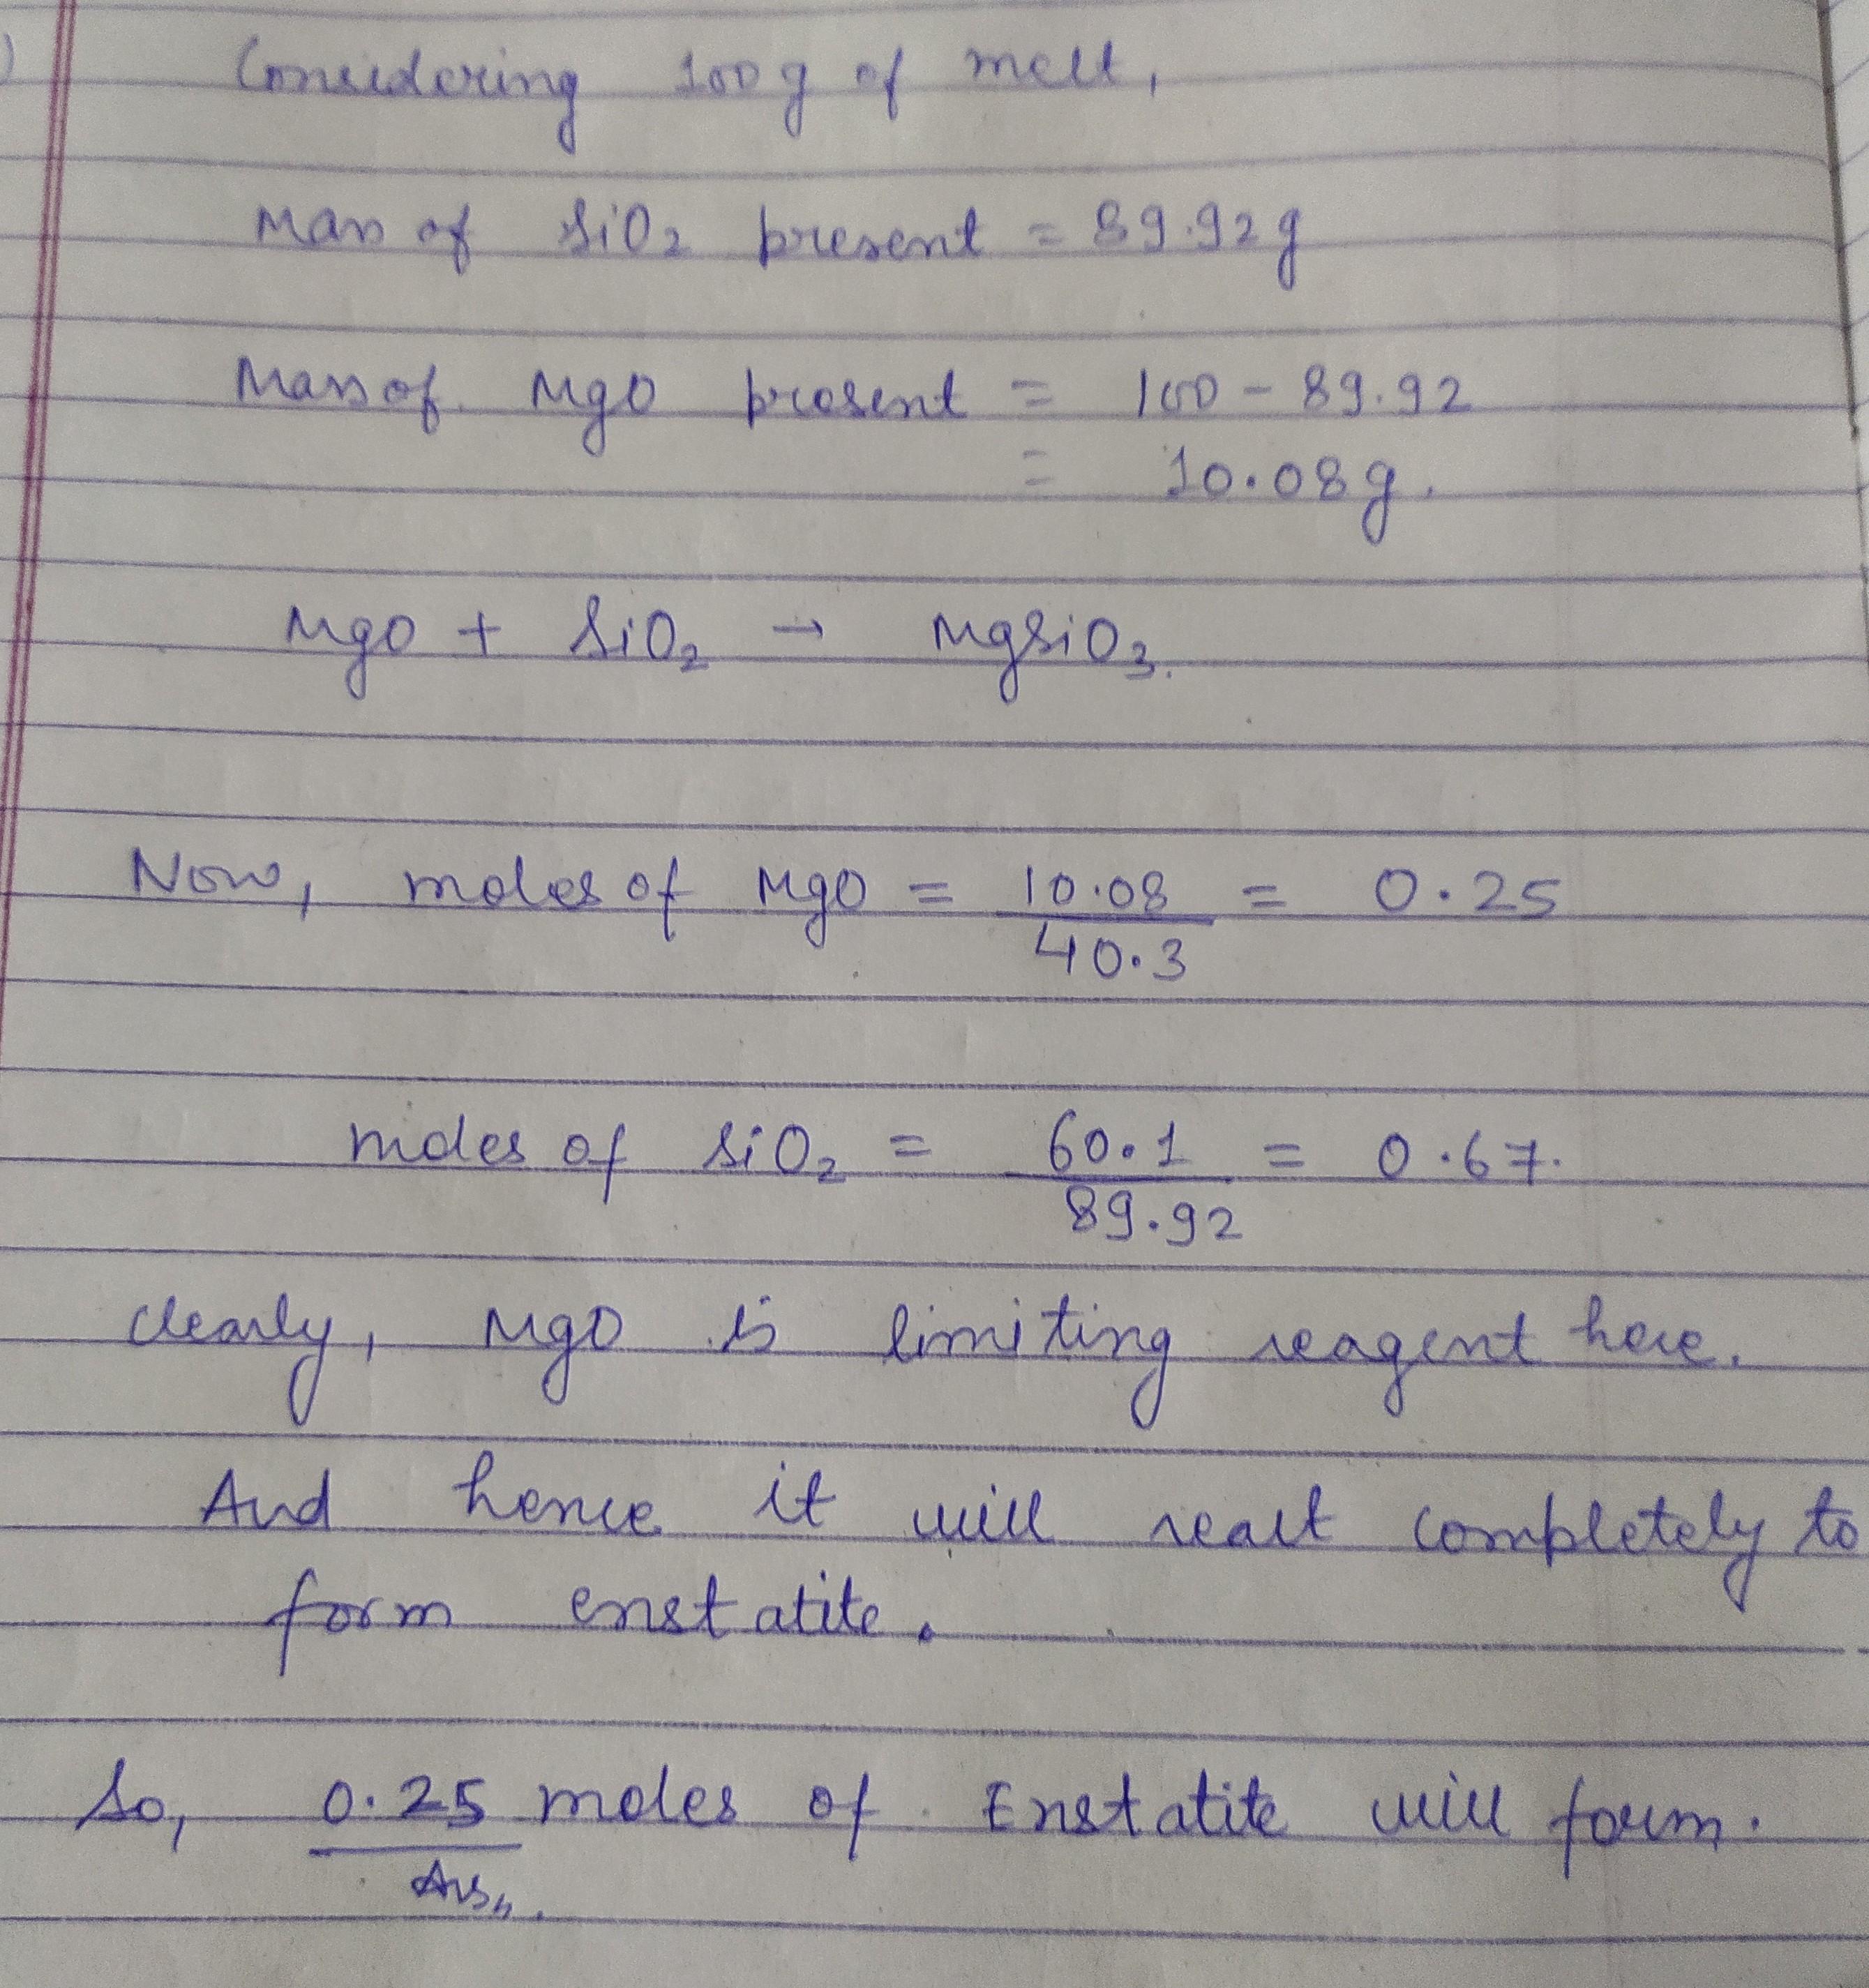 )
Considering 100 g of melt,
Mass of SiO₂ present = 89.92g
Mass of MgO present = 100 - 89.92
= 10.08g.
MgO + SiO₂ → MgSiO₃.
Now, moles of MgO = 10.08/40.3 = 0.25
moles of SiO₂ = 60.1/89.92 = 0.67.
Clearly, MgO is limiting reagent here.
And hence it will react completely to
form enstatite.
So, 0.25 moles of Enstatite will form.
Ans.